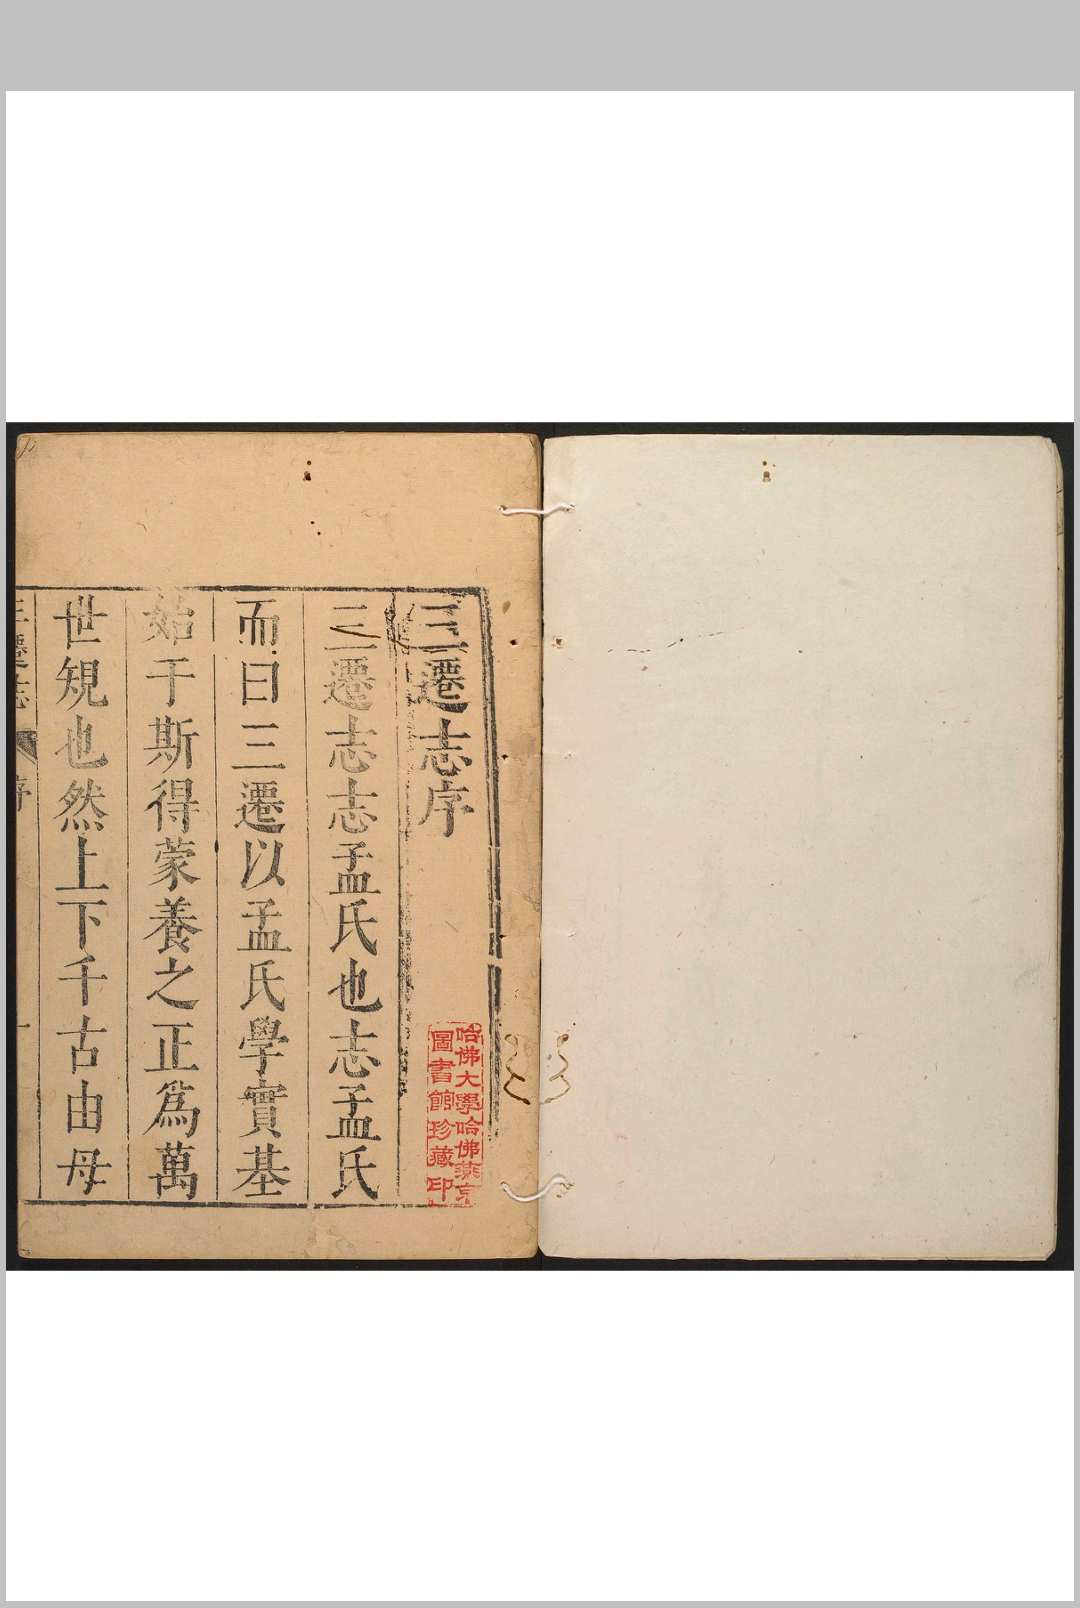 三遷志序
三遷志志孟氏也志孟氏
而曰三遷以孟氏學實基
始于斯得蒙養之正爲萬
世規也然上下千古由母
三遷志
序
一
哈佛大學哈佛燕京
圖書館珍藏印